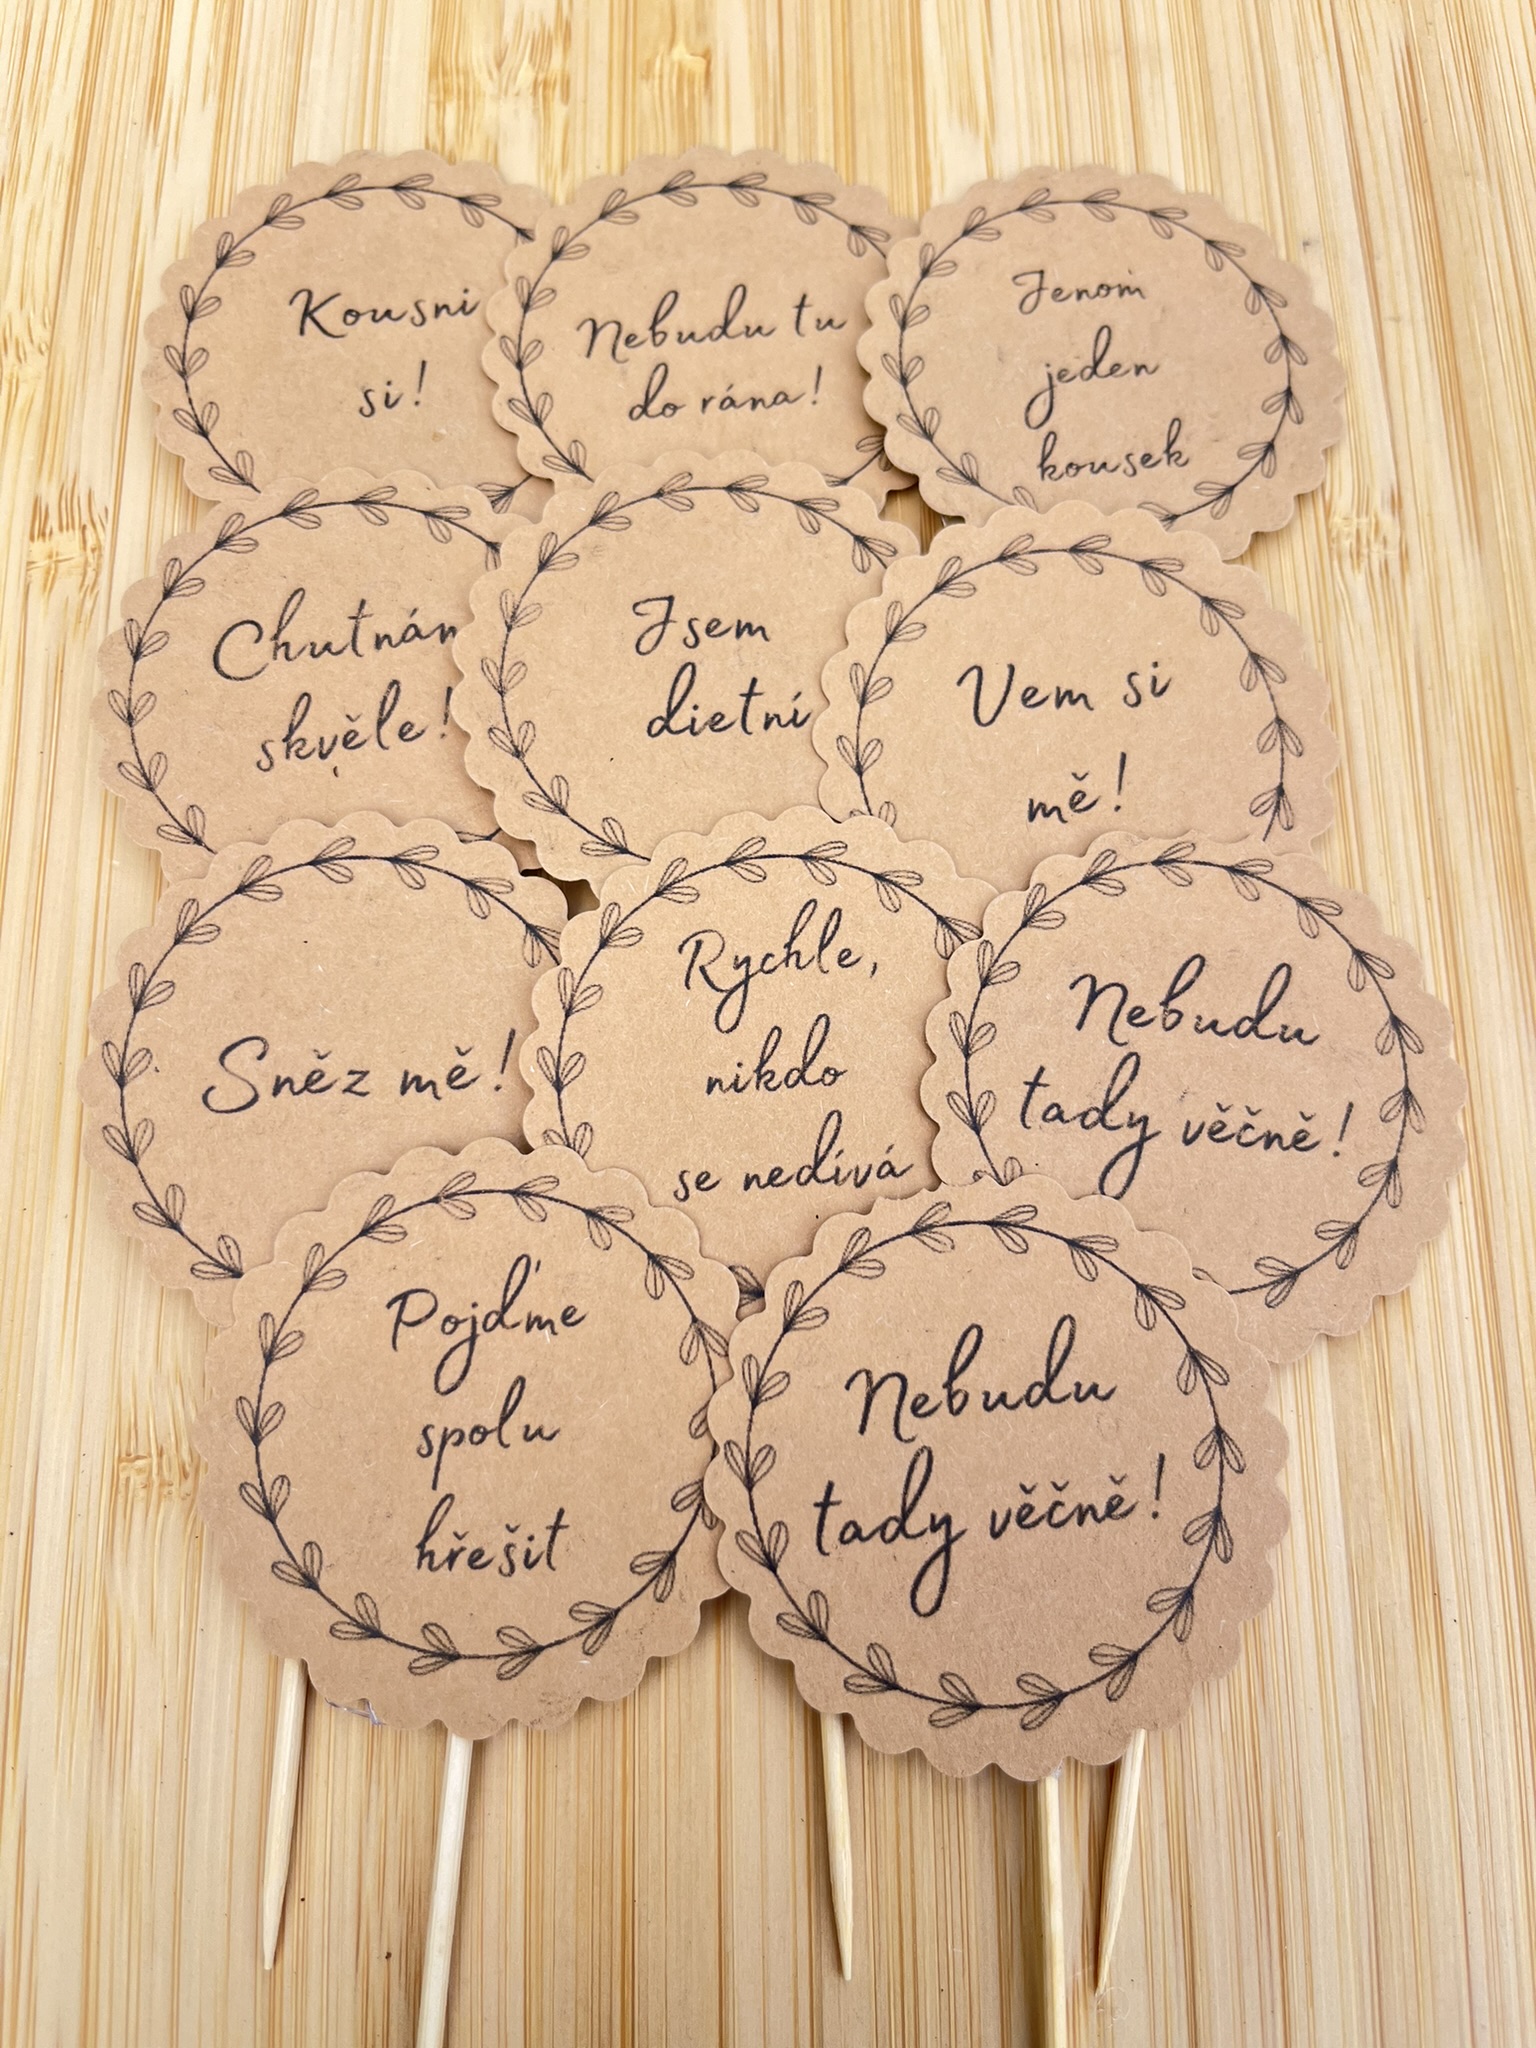 Kousni
si!
Nebudu tu
do rána!
Jenom
jeden
kousek
Chutnám
skvěle!
Jsem
dietní
Vem si
mě!
Sněz mě!
Rychle,
nikdo
se nedívá
Nebudu
tady věčně!
Pojďme
spolu
hřešit
Nebudu
tady věčně!